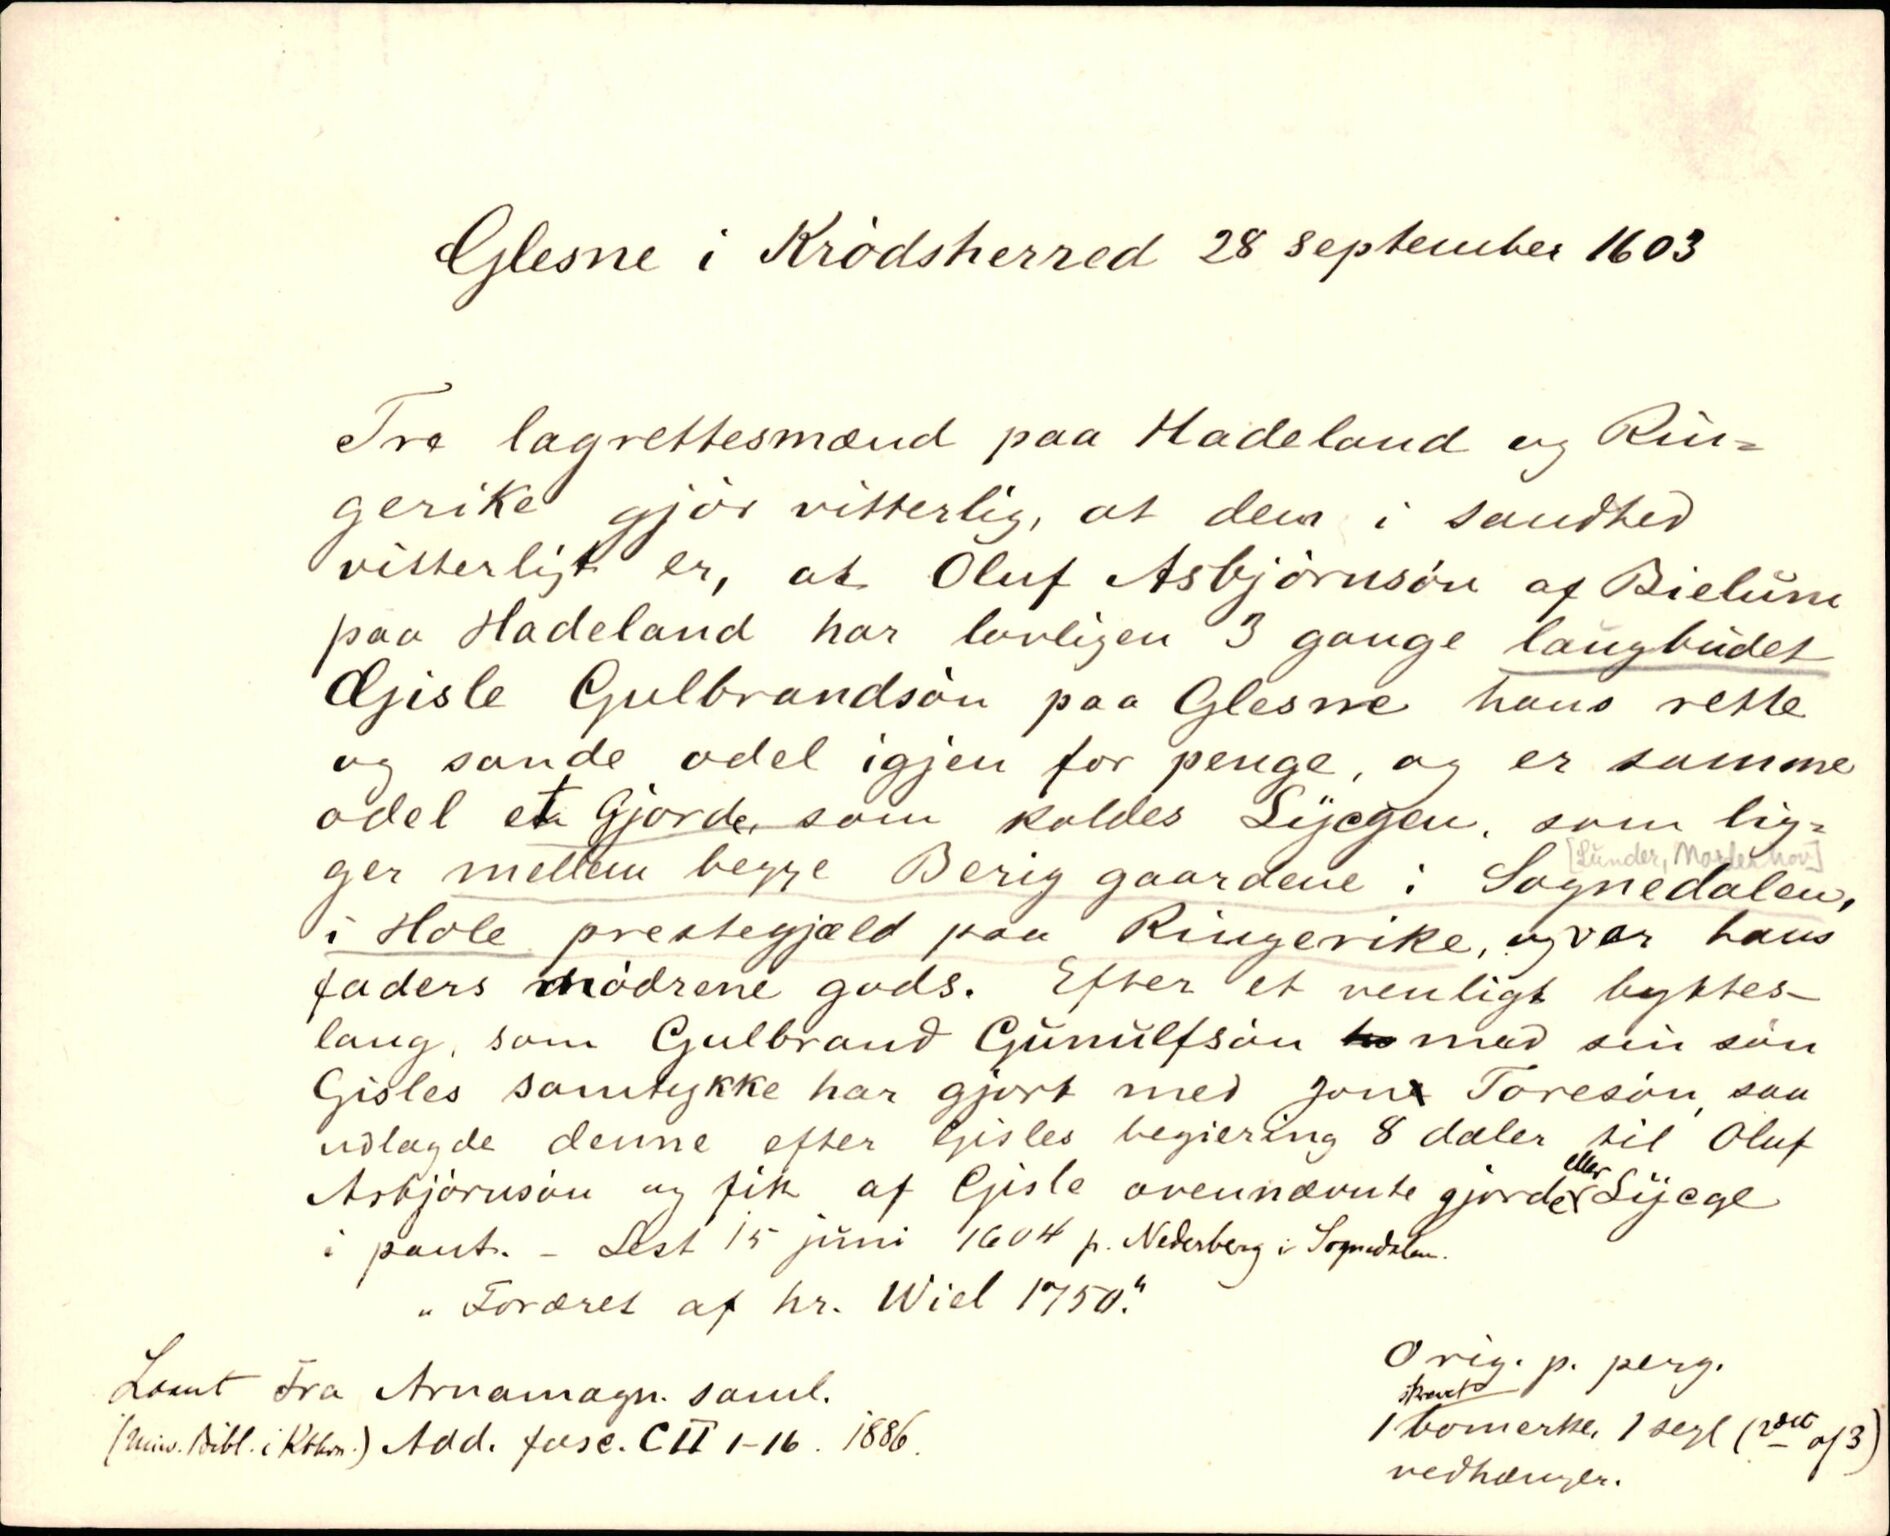 Glesne i Krödsherred 28 september 1603
Tre lagrettesmænd paa Hadeland og Rin=
gerike gjör vitterlig, at dem i sandhed
vitterligt er, at Oluf Asbjörnsön af Bielum
paa Hadeland har lovligen 3 gange laugbudet
Gisle Gulbrandsön paa Glesne hans rette
og sande odel igjen for penge, og er samme
odel et Gjorde, som koldes Lÿcgen, som lig=
[Lunder, Moslerhov]
ger mellem begge Berig gaardene i Sognedalen,
i Hole prestegjæld paa Ringerike, og var hans
faders mödrene gods. Efter et venligt byktes-
laug, som Gulbrand Gunulfsön med sin sön
Gisles samtykke har gjort med Jon Toresön, saa
udlagde denne efter Gisles begiering 8 daler til Oluf
Asbjörnsön og fik af Gisle ovennævnte gjorde eller Lÿcge
i pant. - Lest 15 juni 1604 p. Nederberg i Sognedalen.
„Foræret af hr. Wiel 1750."
Laant fra Arnamagn. saml.
(Univ. Bibl. i Kbhvn.) Add. fasc. C II 1-16. 1886.
Orig. p. perg.
skrevet
1 bomerke, 1 segl (2det af 3)
vedhænger.